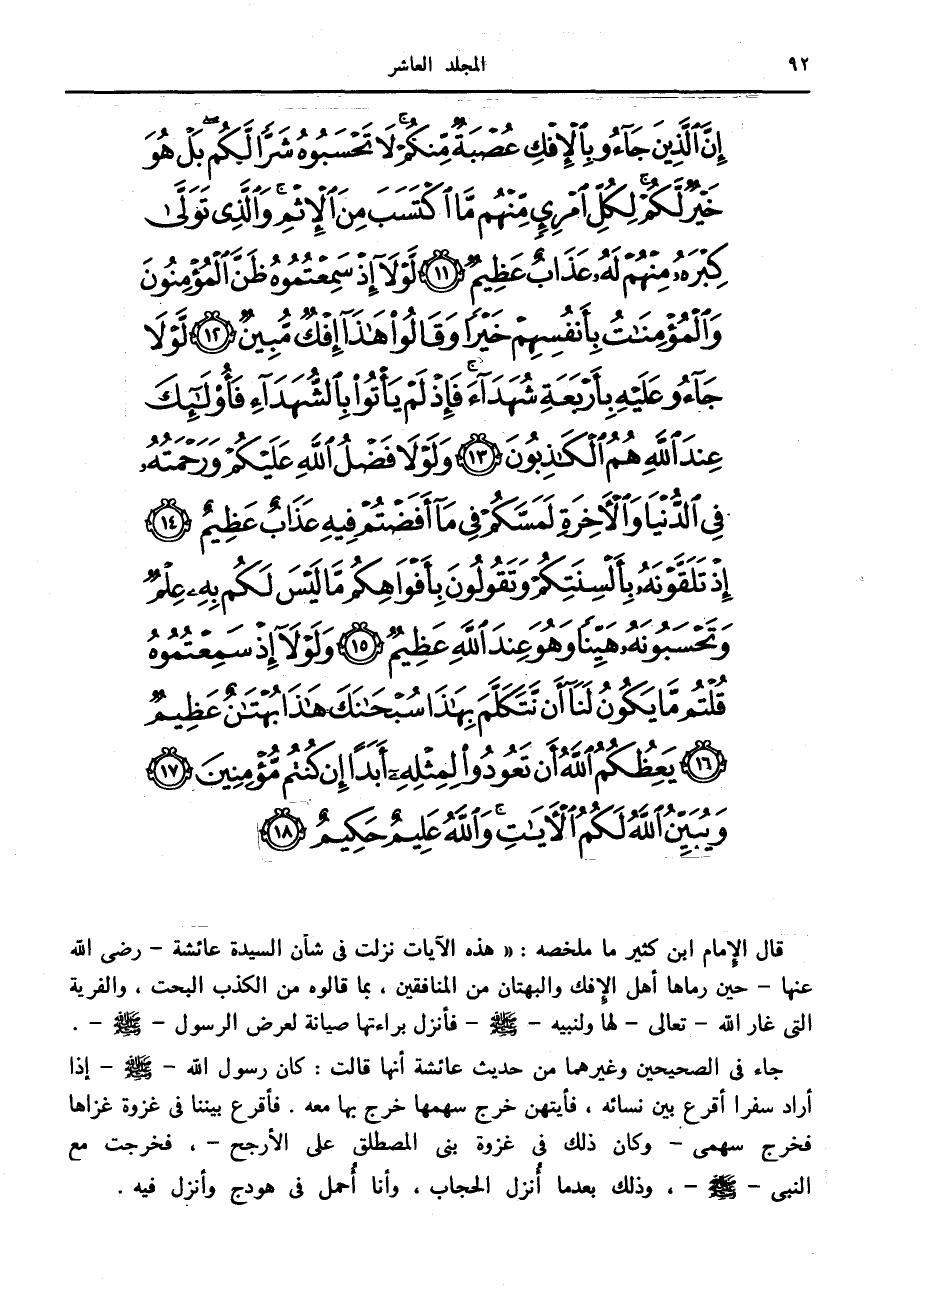 ٩٢ المجلد العاشر
إِنَّ ٱلَّذِينَ جَآءُو بِٱلْإِفْكِ عُصْبَةٌ مِّنكُمْ ۚ لَا تَحْسَبُوهُ شَرًّا لَّكُم ۖ بَلْ هُوَ
خَيْرٌ لَّكُمْ ۚ لِكُلِّ ٱمْرِئٍ مِّنْهُم مَّا ٱكْتَسَبَ مِنَ ٱلْإِثْمِ ۚ وَٱلَّذِى تَوَلَّىٰ
كِبْرَهُۥ مِنْهُمْ لَهُۥ عَذَابٌ عَظِيمٌ ١١ لَّوْلَآ إِذْ سَمِعْتُمُوهُ ظَنَّ ٱلْمُؤْمِنُونَ
وَٱلْمُؤْمِنَٰتُ بِأَنفُسِهِمْ خَيْرًا وَقَالُوا۟ هَٰذَآ إِفْكٌ مُّبِينٌ ١٢ لَّوْلَا
جَآءُو عَلَيْهِ بِأَرْبَعَةِ شُهَدَآءَ ۚ فَإِذْ لَمْ يَأْتُوا۟ بِٱلشُّهَدَآءِ فَأُو۟لَٰٓئِكَ
عِندَ ٱللَّهِ هُمُ ٱلْكَٰذِبُونَ ١٣ وَلَوْلَا فَضْلُ ٱللَّهِ عَلَيْكُمْ وَرَحْمَتُهُۥ
فِى ٱلدُّنْيَا وَٱلْآخِرَةِ لَمَسَّكُمْ فِى مَآ أَفَضْتُمْ فِيهِ عَذَابٌ عَظِيمٌ ١٤
إِذْ تَلَقَّوْنَهُۥ بِأَلْسِنَتِكُمْ وَتَقُولُونَ بِأَفْوَاهِكُم مَّا لَيْسَ لَكُم بِهِۦ عِلْمٌ
وَتَحْسَبُونَهُۥ هَيِّنًا وَهُوَ عِندَ ٱللَّهِ عَظِيمٌ ١٥ وَلَوْلَآ إِذْ سَمِعْتُمُوهُ
قُلْتُم مَّا يَكُونُ لَنَآ أَن نَّتَكَلَّمَ بِهَٰذَا سُبْحَٰنَكَ هَٰذَا بُهْتَٰنٌ عَظِيمٌ
١٦ يَعِظُكُمُ ٱللَّهُ أَن تَعُودُوا۟ لِمِثْلِهِۦٓ أَبَدًا إِن كُنتُم مُّؤْمِنِينَ ١٧
وَيُبَيِّنُ ٱللَّهُ لَكُمُ ٱلْآيَٰتِ ۚ وَٱللَّهُ عَلِيمٌ حَكِيمٌ ١٨
قال الإمام ابن كثير ما ملخصه : « هذه الآيات نزلت فى شأن السيدة عائشة – رضى الله
عنها – حين رماها أهل الإفك والبهتان من المنافقين ، بما قالوه من الكذب البحت ، والفرية
التى غار الله – تعالى – لها ولنبيه – ﷺ – فأنزل براءتها صيانة لعرض الرسول – ﷺ – .
جاء فى الصحيحين وغيرهما من حديث عائشة أنها قالت : كان رسول الله – ﷺ – إذا
أراد سفرا أقرع بين نسائه ، فأيتهن خرج سهمها خرج بها معه . فأقرع بيننا فى غزوة غزاها
فخرج سهمى – وكان ذلك فى غزوة بنى المصطلق على الأرجح – ، فخرجت مع
النبى – ﷺ – ، وذلك بعدما أُنزل الحجاب ، وأنا أُحمل فى هودج وأنزل فيه .